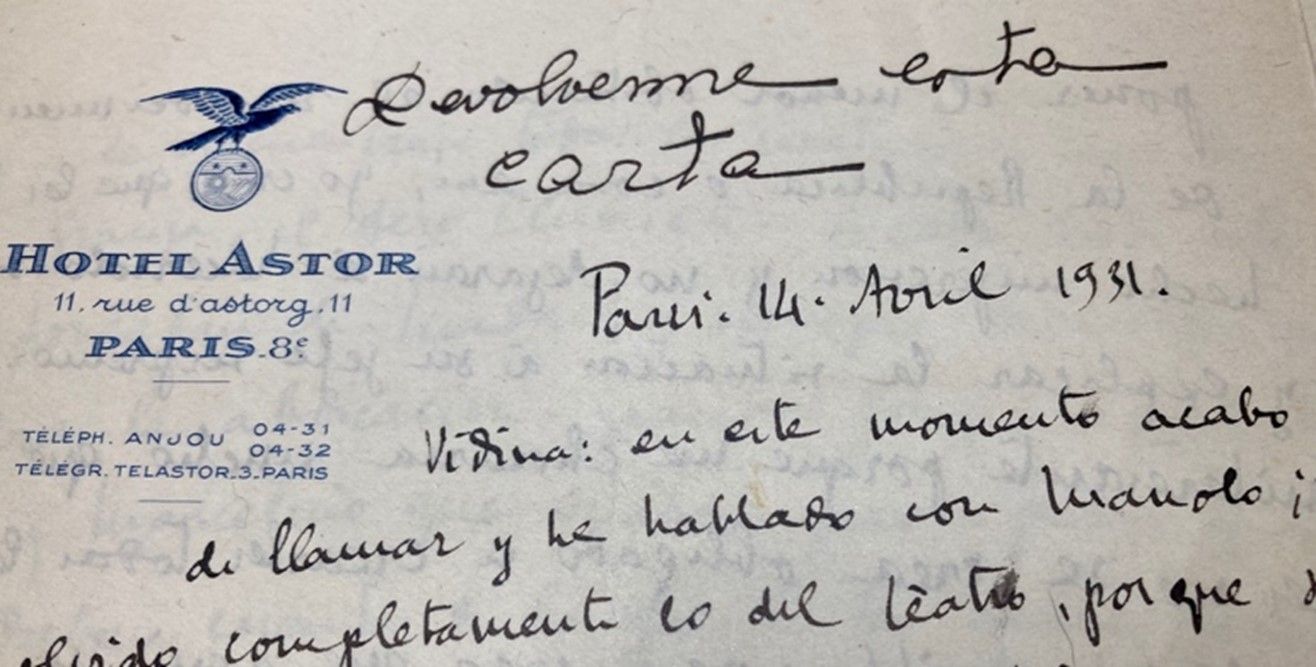 Devolverme esta
carta
HOTEL ASTOR
11, rue d'astorg, 11
PARIS-8e
TÉLÉPH. ANJOU 04-31
04-32
TÉLÉGR. TELASTOR-3-PARIS
Paris. 14. Avril 1931.
Vidina: en este momento acabo
de llamar y he hablado con Manolo ¡
completamente lo del teatro, porque